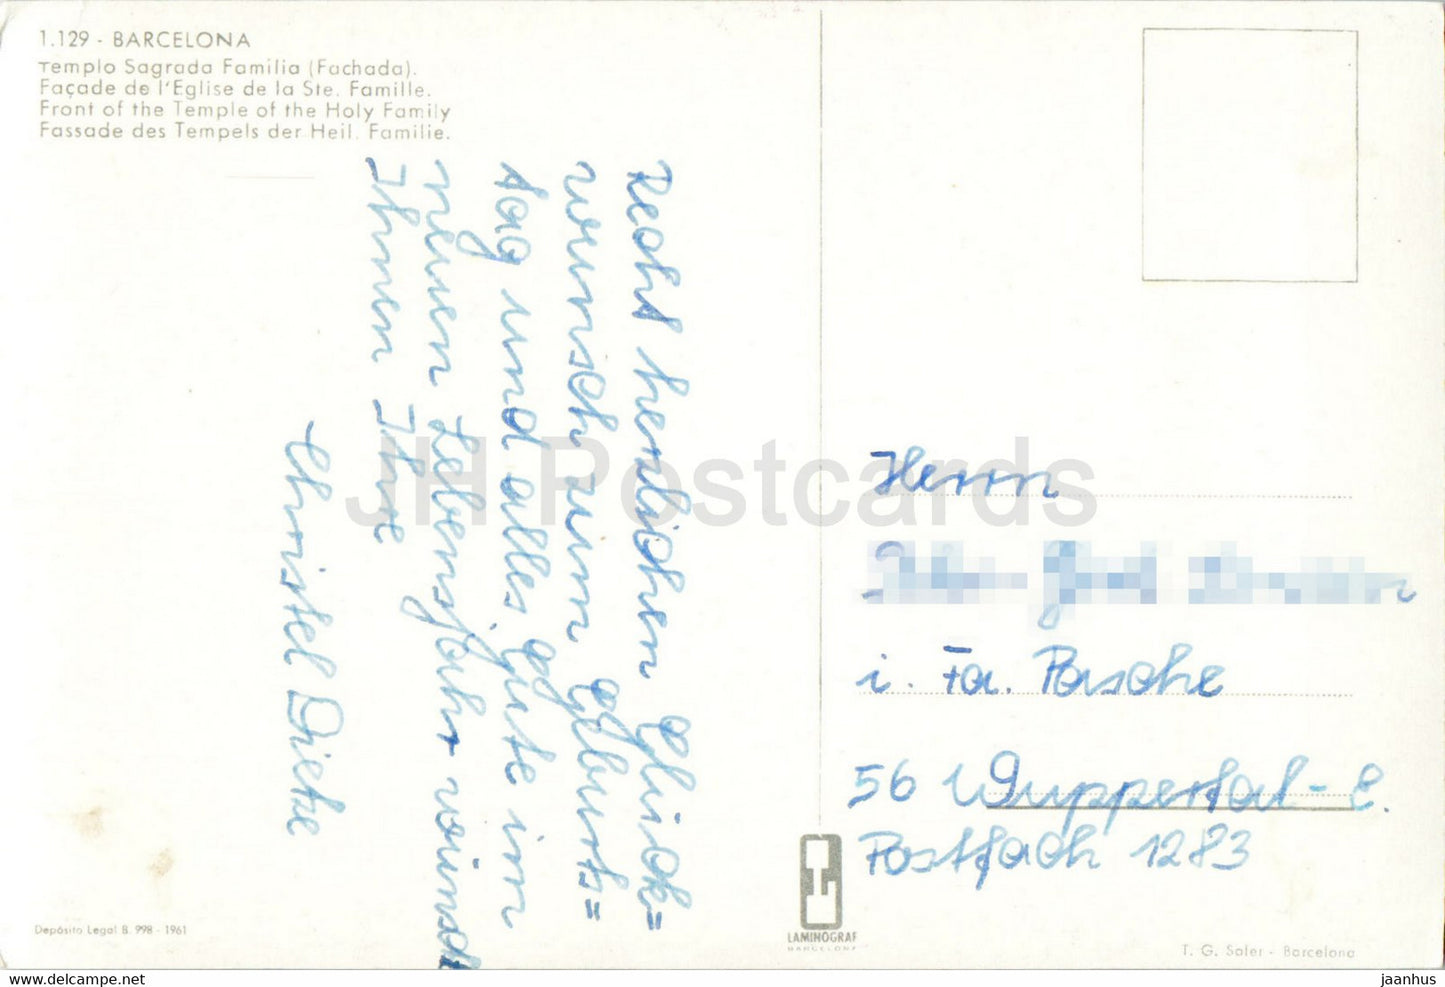 1.129 - BARCELONA
Templo Sagrada Familia (Fachada).
Façade de l'Eglise de la Ste. Famille.
Front of the Temple of the Holy Family
Fassade des Tempels der Heil. Familie.
Recht herzlichen Glück=
wunsch zum Geburts=
tag und alles Gute im
neuen Lebensjahr wünscht
Ihnen Ihre
Christel Dietze
Herrn
i. Fa. Pasche
56 Wuppertal-E.
Postfach 1283
Depósito Legal B. 998 - 1961
LAMINOGRAF
BARCELONA
T. G. Soler - Barcelona
JH Postcards
hippostcard.com
jaanhus